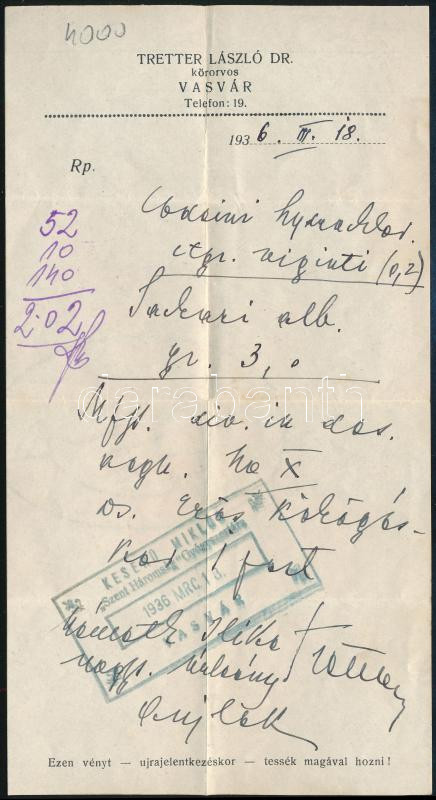 4000
TRETTER LÁSZLÓ DR.
körorvos
VASVÁR
Telefon: 19.
1936. III. 18.
Rp.
52
10
140
2.02
Codeini hydrochlor.
ctgr. viginti (0,2)
Sachari alb.
gr. 3,0
Mfp. div. in dos.
No X
DS. Erős köhögés-
kor 1 port
KESERŰ MIKLÓS
"Szent Háromság" Gyógyszertára
1936 MRC. 18.
VASVÁR
Németh Ilike
darabanth
Ezen vényt — ujrajelentkezéskor — tessék magával hozni!